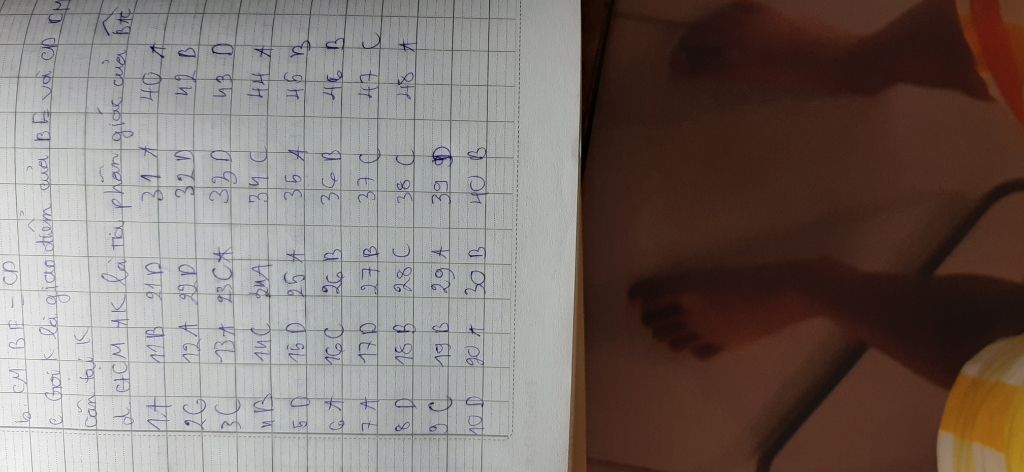 b. CM BE = CD
c Gọi K là giao điểm của BE với CD CM
cân tại K
d, CM AK là tia phân giác của BAC
1A 11B 21D 31A 40 A
2C 12A 22D 32D 42 B
3C 13A 23CA 33D 43 D
4B 14C 24A 34C 44 A
5D 15D 25A 35A 45 B
6A 16C 26B 36B 46 B
7A 17D 27B 37C 47 C
8D 18B 28C 38C 48 A
9C 19B 29A 39D
10D 20A 30B 40B